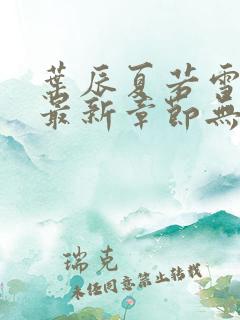 葉辰夏若雪
最新章節無
瑞克
未经同意禁止转载